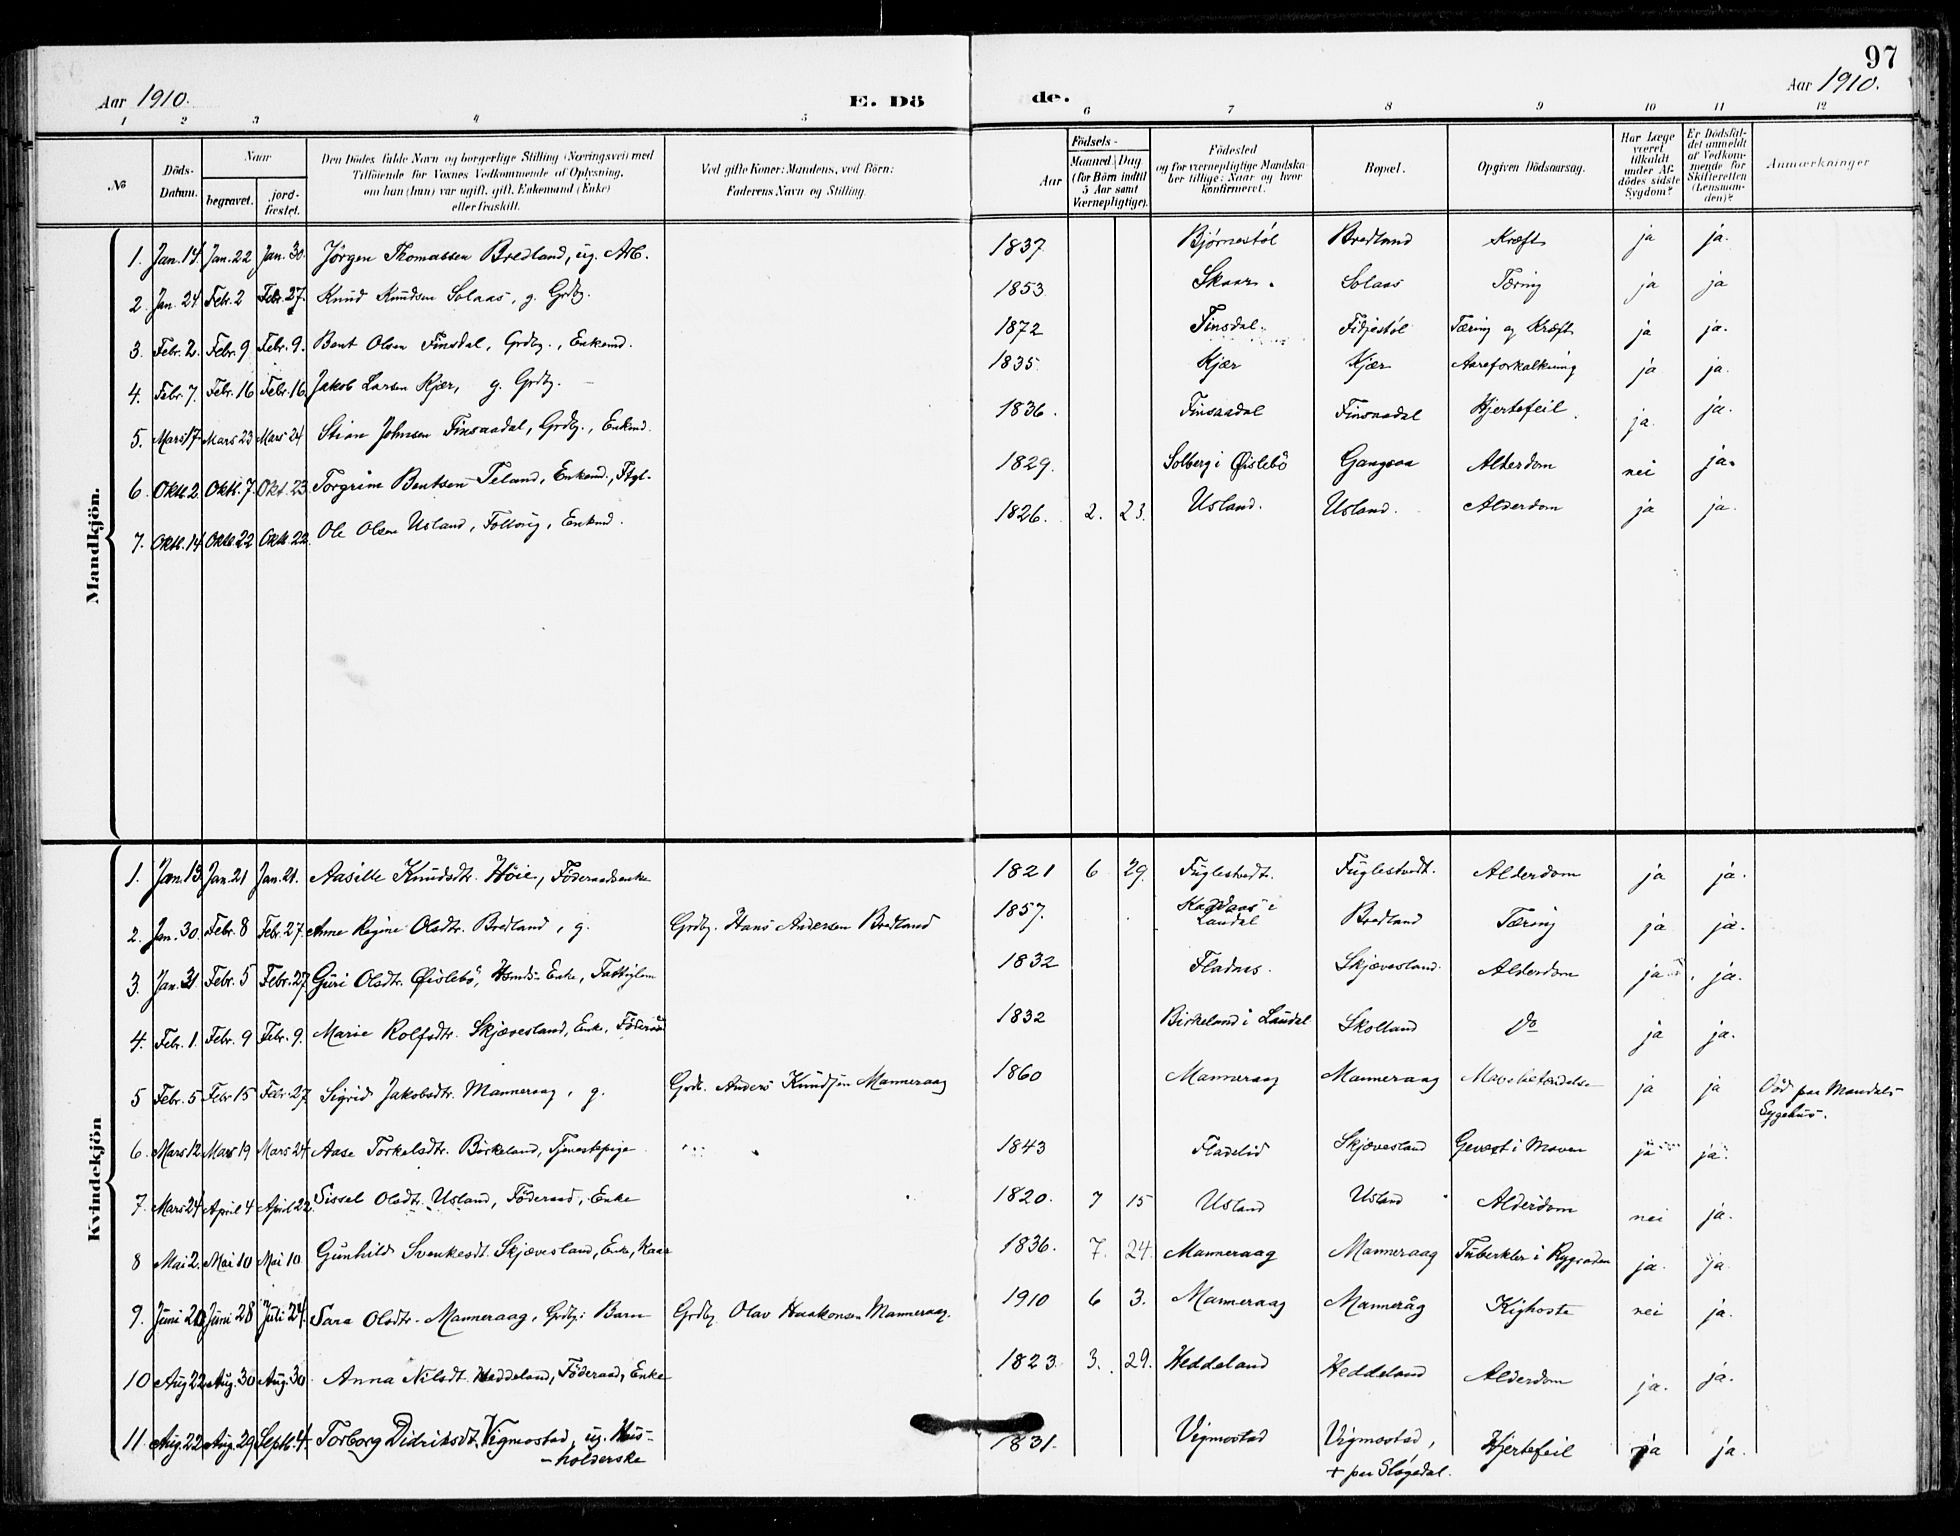 97
Aar 1910.
E. Dö
de.
Aar 1910.
1 2 3 4 5 6 7 8 9 10 11 12
No
Döds-Datum.
Naar
begravet.
jordfæstet.
Den Dödes fulde Navn og borgerlige Stilling (Næringsvei) med
Tilföiende för Voxnes Vedkommende af Oplysning,
om han (hun) var ugift, gift, Enkemand (Enke)
eller fraskilt.
Ved gifte Koner: Mandens, ved Börn:
Faderens Navn og Stilling.
Födsels-
Aar
Maaned Dag
(for Börn indtil
5 Aar samt
Værnepligtige).
Födested
og for værnepligtige Mandska-
ber tillige: Naar og hvor
konfirmeret.
Bopæl.
Opgiven Dödsaarsag.
Har Læge
været
tilkaldt
under Af-
dödes sidste
Sygdom?
Er Dödsfal-
det anmeldt
af Vedkom-
mende for
Skifteretten
(Lensman-
den)?
Anmærkninger
Mandkjön.
1. Jan. 14. Jan. 22 Jan. 30. Jørgen Thomassen Bredland, ug. Arb. 1837. Bjørnestøl Bredland Kræft ja ja.
2. Jan. 24 Febr. 2 Febr. 27. Knud Knudsen Solaas, g. Grdbg. 1853 Skaar. Solaas Tæring ja ja
3. Febr. 2. Febr. 9 Febr. 9. Bent Olsen Finsdal, Grdbg., Enkemd. 1872 Finsdal. Fidjestøl Tæring og Kræft ja ja.
4. Febr. 7. Febr. 16 Febr. 16 Jakob Larsen Kjær, g. Grdbg. 1835. Kjær Kjær Aareforkalkning ja ja.
5. Mars 17. Mars 23 Mars 24 Stian Johnsen Finsaadal, Grdbg., Enkmd. 1836. Finsaadal Finsaadal Hjertefeil. ja. ja.
6. Oktb. 2. Oktb. 7. Okt. 23. Torgrim Bentsen Teland, Enkemd., Ftgl. 1829. Solberg i Øislebö Gangsaa Alderdom nei ja.
7. Oktb. 14 Oktb 22 Oktb. 22. Ole Olsen Usland, Enkmd. 1826. 2. 23. Usland. Usland. Alderdom ja ja.
Kvindekjön
1. Jan. 13. Jan. 21 Jan. 21. Aasille Knudsdtr. Höie, Föderaadsenke 1821 6 29. Fuglestvedt. Fuglestvedt. Alderdom ja ja.
2. Jan. 30. Febr. 8 Febr. 27. Anne Regine Olsdtr. Bredland, g. Grdbg. Hans Andersen Bredland 1857. i Laudal Bredland Tæring ja ja.
3. Jan. 31 Febr. 5 Febr. 27. Guri Olsdtr. Øislebö, Enke, Fattiglem 1832 Fladnes. Skjævesland. Alderdom ja ja.
4. Febr. 1. Febr. 9 Febr. 9. Marie Rolfsdtr. Skjævesland, Enke, Föderaad 1832 Birkeland i Laudal Skolland do ja ja.
5 Febr. 5 Febr 15 Febr. 27. Sigrid Jakobsdtr. Manneraag, g. Grdb. Anders Knudsen Manneraag 1860 Manneraag Manneraag Mavebetændelse ja ja Död paa Mandals
Sygehus.
6. Mars 12. Mars 19 Mars 24 Aase Torkelsdtr. Birkeland, Tjenestepige. 1843 Fladelid Skjævesland Gevext i Maven ja ja.
7. Mars 24 April 4 April 22. Sissel Olsdtr. Usland, Föderaad, Enke 1820. 7 15 Usland Usland Alderdom nei ja.
8 Mai 2. Mai 10 Mai 10. Gunhild Svenkesdt. Skjævesland, Enke, Kaar 1836. 7. 24. Manneraag Manneraag Tuberkler i Rygraden ja. ja.
9. Juni 20 Juni 28 Juli 24. Sara Olsdtr. Manneraag, Grdbg. Barn Grdbg. Olav Haakonsen Manneraag. 1910 6 3. Manneraag Manneråg Kighoste nei ja.
10 Aug 22. Aug. 30 Aug. 30 Anna Nilsdt. Heddeland, Föderaad, Enke 1823. 3. 29. Heddeland Heddeland Alderdom ja. ja.
11. Aug. 22 Aug. 29 Septb. 4. Torborg Didriksdt. Vigmostad, ug. Hus-
-holderske 1831. Vigmostad Vigmostad,
+ paa Slögedal. Hjertefeil ja ja.